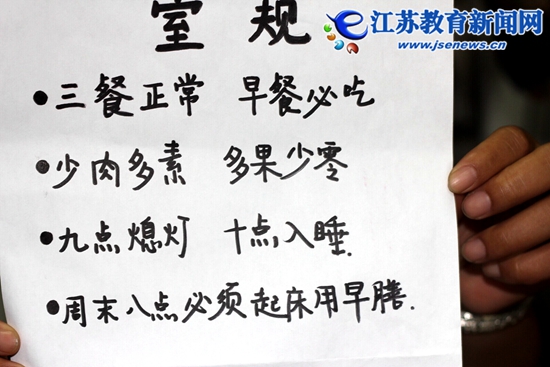 江苏教育新闻网
www.jsenews.cn
室规
●三餐正常 早餐必吃
●少肉多素 多果少零
●九点熄灯 十点入睡.
●周末八点必须起床用早膳.